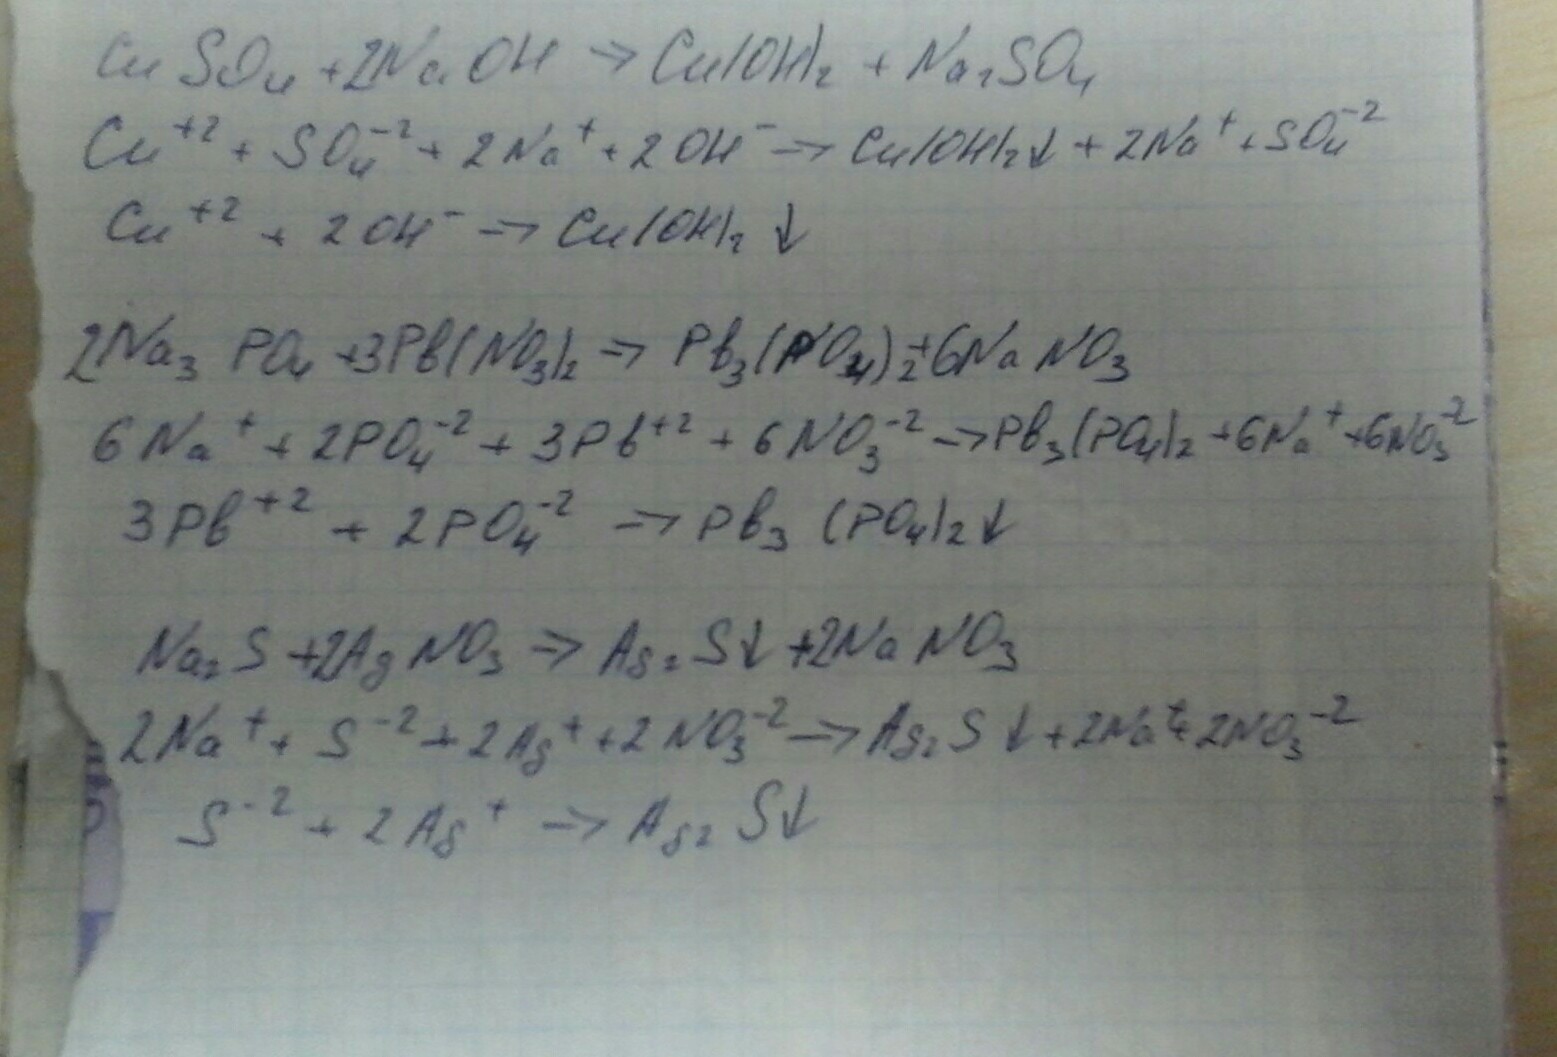 CuSO₄ + 2NaOH → Cu(OH)₂ + Na₂SO₄
Cu⁺² + SO₄⁻² + 2Na⁺ + 2OH⁻ → Cu(OH)₂↓ + 2Na⁺ + SO₄⁻²
Cu⁺² + 2OH⁻ → Cu(OH)₂↓
2Na₃PO₄ + 3Pb(NO₃)₂ → Pb₃(PO₄)₂ + 6NaNO₃
6Na⁺ + 2PO₄⁻² + 3Pb⁺² + 6NO₃⁻² → Pb₃(PO₄)₂ + 6Na⁺ + 6NO₃⁻²
3Pb⁺² + 2PO₄⁻² → Pb₃(PO₄)₂↓
Na₂S + 2AgNO₃ → Ag₂S↓ + 2NaNO₃
2Na⁺ + S⁻² + 2Ag⁺ + 2NO₃⁻² → Ag₂S↓ + 2Na⁺ + 2NO₃⁻²
S⁻² + 2Ag⁺ → Ag₂S↓